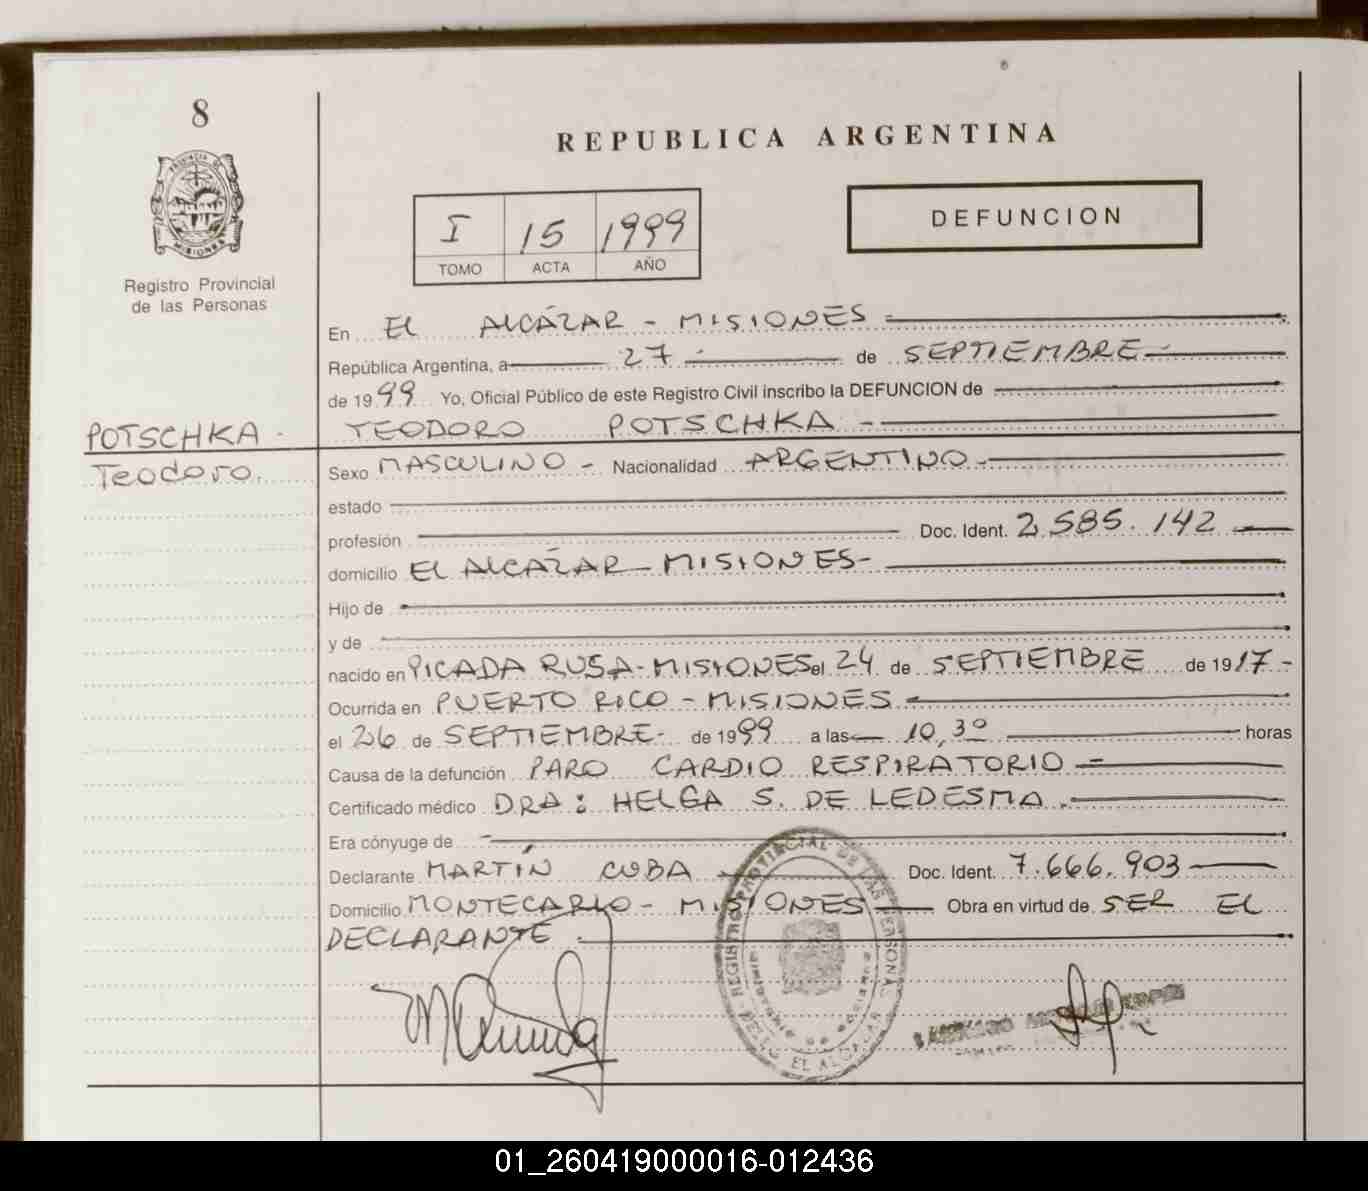 8
PROVINCIA DE
MISIONES
Registro Provincial
de las Personas
REPUBLICA ARGENTINA
I 15 1999
TOMO ACTA AÑO
DEFUNCION
En EL ALCÁZAR - MISIONES
República Argentina, a 27 de SEPTIEMBRE
de 1999 Yo, Oficial Público de este Registro Civil inscribo la DEFUNCION de
POTSCHKA - TEODORO POTSCHKA -
Teodoro. Sexo MASCULINO - Nacionalidad ARGENTINO -
estado
profesión Doc. Ident. 2.585.142
domicilio EL ALCÁZAR - MISIONES -
Hijo de
y de
nacido en PICADA RUSA - MISIONES el 24 de SEPTIEMBRE de 1917 -
Ocurrida en PUERTO RICO - MISIONES
el 26 de SEPTIEMBRE - de 1999 a las 10,30 horas
Causa de la defunción PARO CARDIO RESPIRATORIO -
Certificado médico DRA: HELGA S. DE LEDESMA.
Era cónyuge de
Declarante MARTÍN CUBA Doc. Ident. 7.666.903
Domicilio MONTECARLO - MISIONES Obra en virtud de SER EL
DECLARANTE.
REGISTRO PROVINCIAL DE LAS PERSONAS
EL ALCAZAR
01_260419000016-012436